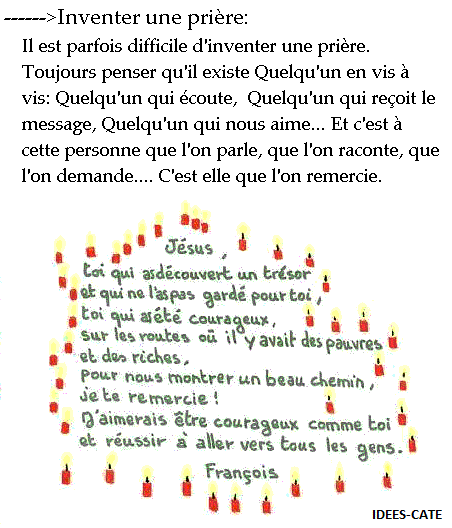 ------>Inventer une prière:
Il est parfois difficile d'inventer une prière.
Toujours penser qu'il existe Quelqu'un en vis à
vis: Quelqu'un qui écoute, Quelqu'un qui reçoit le
message, Quelqu'un qui nous aime... Et c'est à
cette personne que l'on parle, que l'on raconte, que
l'on demande.... C'est elle que l'on remercie.
Jésus,
toi qui as découvert un trésor
et qui ne l'as pas gardé pour toi,
toi qui as été courageux,
sur les routes où il y avait des pauvres
et des riches,
pour nous montrer un beau chemin,
je te remercie !
J'aimerais être courageux comme toi
et réussir à aller vers tous les gens.
François
IDEES-CATE